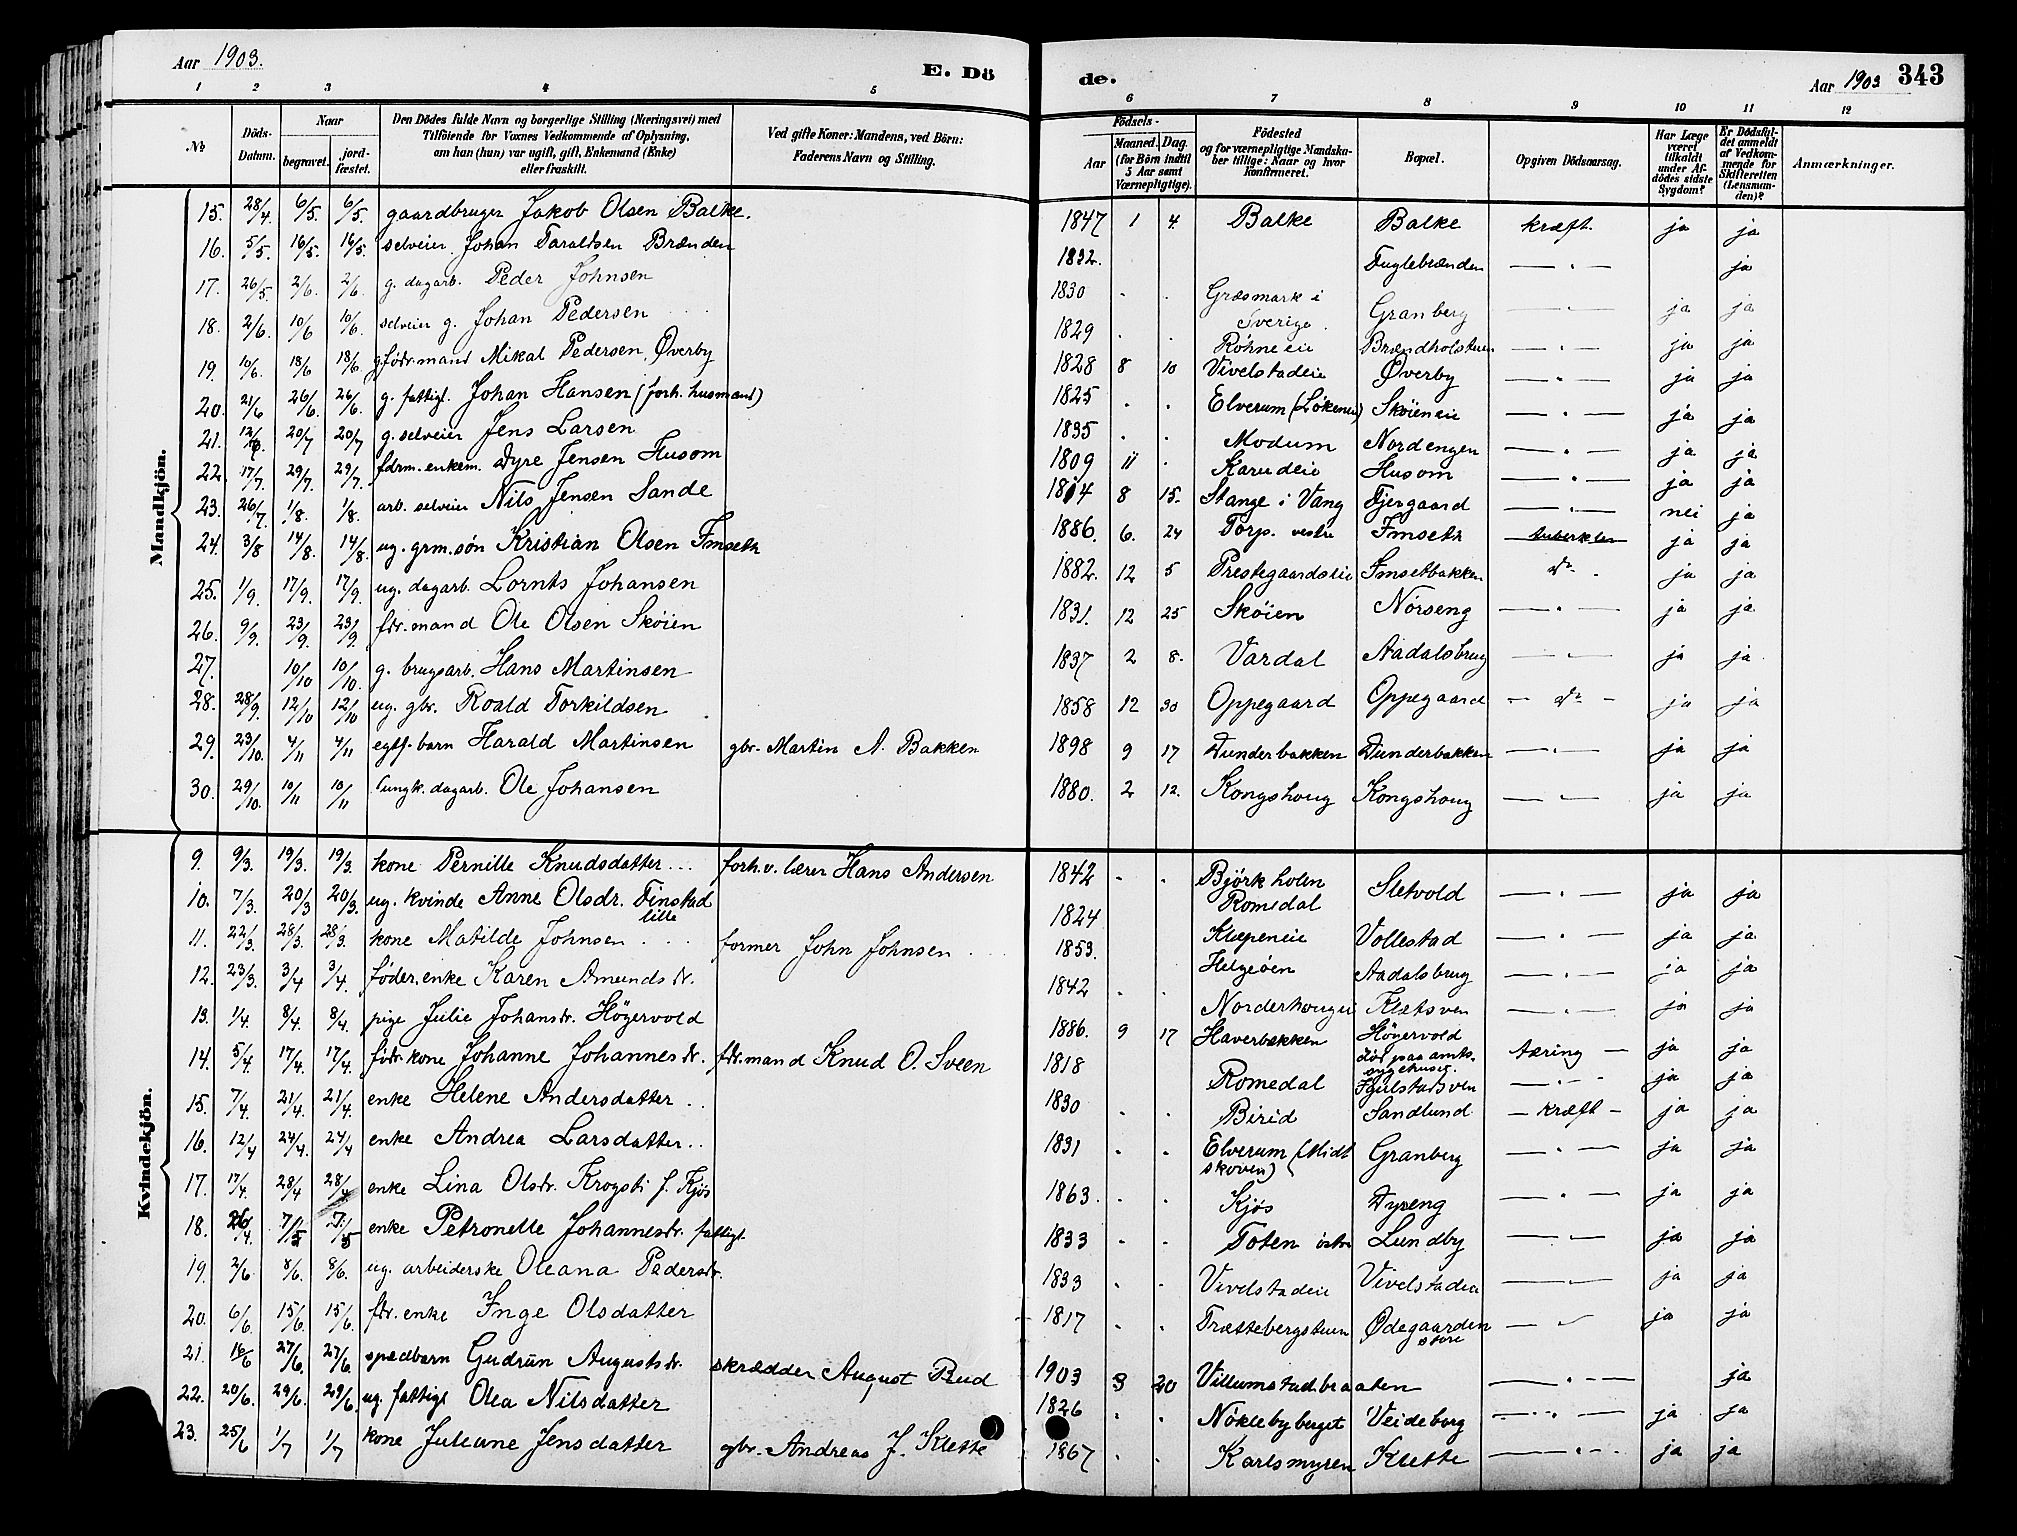 Aar 1903.
E. Dö
de.
Aar 1903
343
1 2 3 4 5 6 7 8 9 10 11 12
№
Döds-
Datum.
Naar
begravet.
jord-
fæstet.
Den Dödes fulde Navn og borgerlige Stilling (Næringsvei) med
Tilföiende for Voxnes Vedkommende af Oplysning,
om han (hun) var ugift, gift, Enkemand (Enke)
eller fraskilt.
Ved gifte Koner: Mandens, ved Börn:
Faderens Navn og Stilling.
Födsels-
Aar
Maaned. Dag.
(for Börn indtil
5 Aar samt
Værnepligtige).
Födested
og for værnepligtige Mandska-
ber tillige: Naar og hvor
konfirmeret.
Bopæl.
Opgiven Dödsaarsag.
Har Læge
været
tilkaldt
under Af-
dödes sidste
Sygdom?
Er Dödsfal-
det anmeldt
af Vedkom-
mende for
Skifteretten
(Lensman-
den)?
Anmærkninger.
Mandkjön.
15. 28/4 6/5. 6/5. gaardbruger Jakob Olsen Balke. 1847 1 4. Balke Balke kræft. ja ja
16. 5/5. 16/5. 16/5. selveier Johan Taraldsen Brænden 1832. Fuglebrænden — " — ja
17. 26/5 2/6. 2/6. g. dagarb. Peder Johnsen 1830 . . Græsmark i Sverige. Granberg — " — ja ja
18. 2/6. 10/6 10/6. selveier g. Johan Pedersen 1829 . . Röhne eie Brændholstuen — " — ja ja
19. 10/6. 18/6 18/6. g. födr. mand Mikal Pedersen Øverby 1828 8 10 Vivelstadeie Øverby — " — ja ja
20. 21/6 26/6. 26/6. g. fattigl. Johan Hansen (forh. husmand) 1825 . . Elverum (Lökenen) Skoieneie — " — ja ja
21. 20/7 20/7 g. selveier Jens Larsen 1835 . . Modum Nordengen — " — ja ja
22. 17/7. 29/7. 29/7. fdrm. enkem. Dyre Jensen Husom 1809 11 . Karudeie Husom — " — ja ja
23. 26/7. 1/8. 1/8. arb. selveier Nils Jensen Sande 8 15. Stange i Vang Fjergaard — " — nei ja
24. 3/8 14/8. 14/8. ug. grm. søn Kristian Olsen Imseth 1886. 6. 24 Torp. vestre Imseth tuberkler ja ja
25. 1/9. 17/9. 17/9. ug. dagarb. Lornts Johansen 1882. 12 5 Prestegaardseie Imsetbakken do. ja ja
26. 9/9. 23/9. 23/9. fdr. mand Ole Olsen Sköien 1831. 12 25 Sköien Nörseng — " — ja ja
27. 10/10 10/10. g. brugsarb. Hans Martinsen 1837 2 8. Vardal Aadalsbrug — " — ja ja
28. 28/9. 12/10 12/10 ug. gbr. Roald Torkildsen 1858 12 30 Oppegaard Oppegaard — do — ja ja
29. 23/10. 4/11 4/11 egtf. barn Harald Martinsen gbr. Martin A. Bakken 1898 9 17 Dunderbakken Dunderbakken — " — ja ja
30. 29/10. 10/11 10/11 ungk. dagarb. Ole Johansen 1880. 2 12. Kongshoug Kongshoug — " — ja ja
Kvindekjön.
9. 9/3. 19/3. 19/3. kone Pernille Knudsdatter ... forh. v. lærer Hans Andersen 1842 . . Björkholen Romedal Sletvold — " — ja ja
10. 7/3. 20/3 20/3. ug. kvinde Anne Olsdr. Finstad lille 1824 Klæpeneie Vollestad — " — ja ja
11. 22/3. 28/3. 28/3. kone Matilde Johnsen former John Johnsen 1853. Helgeöen Aadalsbrug — " — ja ja
12. 23/3. 3/4 3/4. föder. enke Karen Amundsdr. 1842 . . Norderhougeie Kletsven — " — ja ja
13. 1/4. 8/4. 8/4. pige Julie Johansdr. Högervold 1886. 9 17 Haverbakken Högervold död paa amts-sygehuset. tæring — ja ja
14. 5/4. 17/4. 17/4. födr. kone Johanne Johannesdr. fdr. mand Knud O. Sveen 1818 Romedal Hjulstadsven — " — ja ja
15. 7/4. 21/4. 21/4. enke Helene Andersdatter 1830 . . Birid Sandlund — kræft — ja ja
16. 12/4 24/4. 24/4 enke Andrea Larsdatter.. 1831 . . Elverum (Midtskoven) Granberg — " — ja ja
17. 17/4. 28/4 28/4 enke Lina Olsdr. Krogsti f. Kjös 1863. . . Kjös Dyreng — " — ja ja
18. 26/4. 7/5 7/5 enke Petronelle Johannesdr. fattigl. 1833 . . Toten östre Lundby — " — ja ja
19. 2/6 8/6. 8/6. ug. arbeiderske Oleana Pedersdr. 1833 . . Vivelstadeie Vivelstadeie — " — ja ja
20. 6/6. 15/6. 15/6. fdr. enke Inge Olsdatter 1817 . . Trættebergstuen Ødegaarden store — " — ja ja
21. 16/6 27/6. 27/6. spædbarn Gudrun Augustsdr. skrædder August Rud 1903 3 20 Villumstadbraaten — " — ja
22. 20/6. 29/6. 29/6. ug. fattigl Olea Nilsdatter 1826 . . Nöklebyberget Veideborg — " — ja ja
23. 25/6 1/7 1/7 kone Juleane Jensdatter gbr. Andreas J. Klette 1867 . . Karlsmyren Klette — " — ja ja